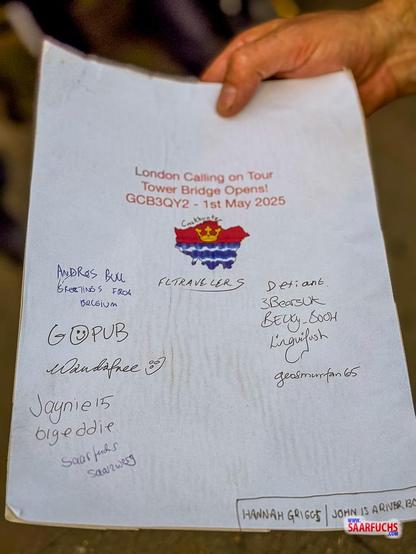 London Calling on Tour
Tower Bridge Opens!
GCB3QY2 - 1st May 2025
ANDRAS BULL
GREETINGS FROM
BELGIUM
FLTRAVELERS
Defiant
3BearsUk
BECKY_BOOH
Linguifish
GOPUB
Wandafree
geosmurfan65
Jaynie15
bigeddie
Saarfuchs
Saarzwerg
HANNAH GRIGGS JOHN IS A RIVER BO
WWW.
SAARFUCHS
.COM